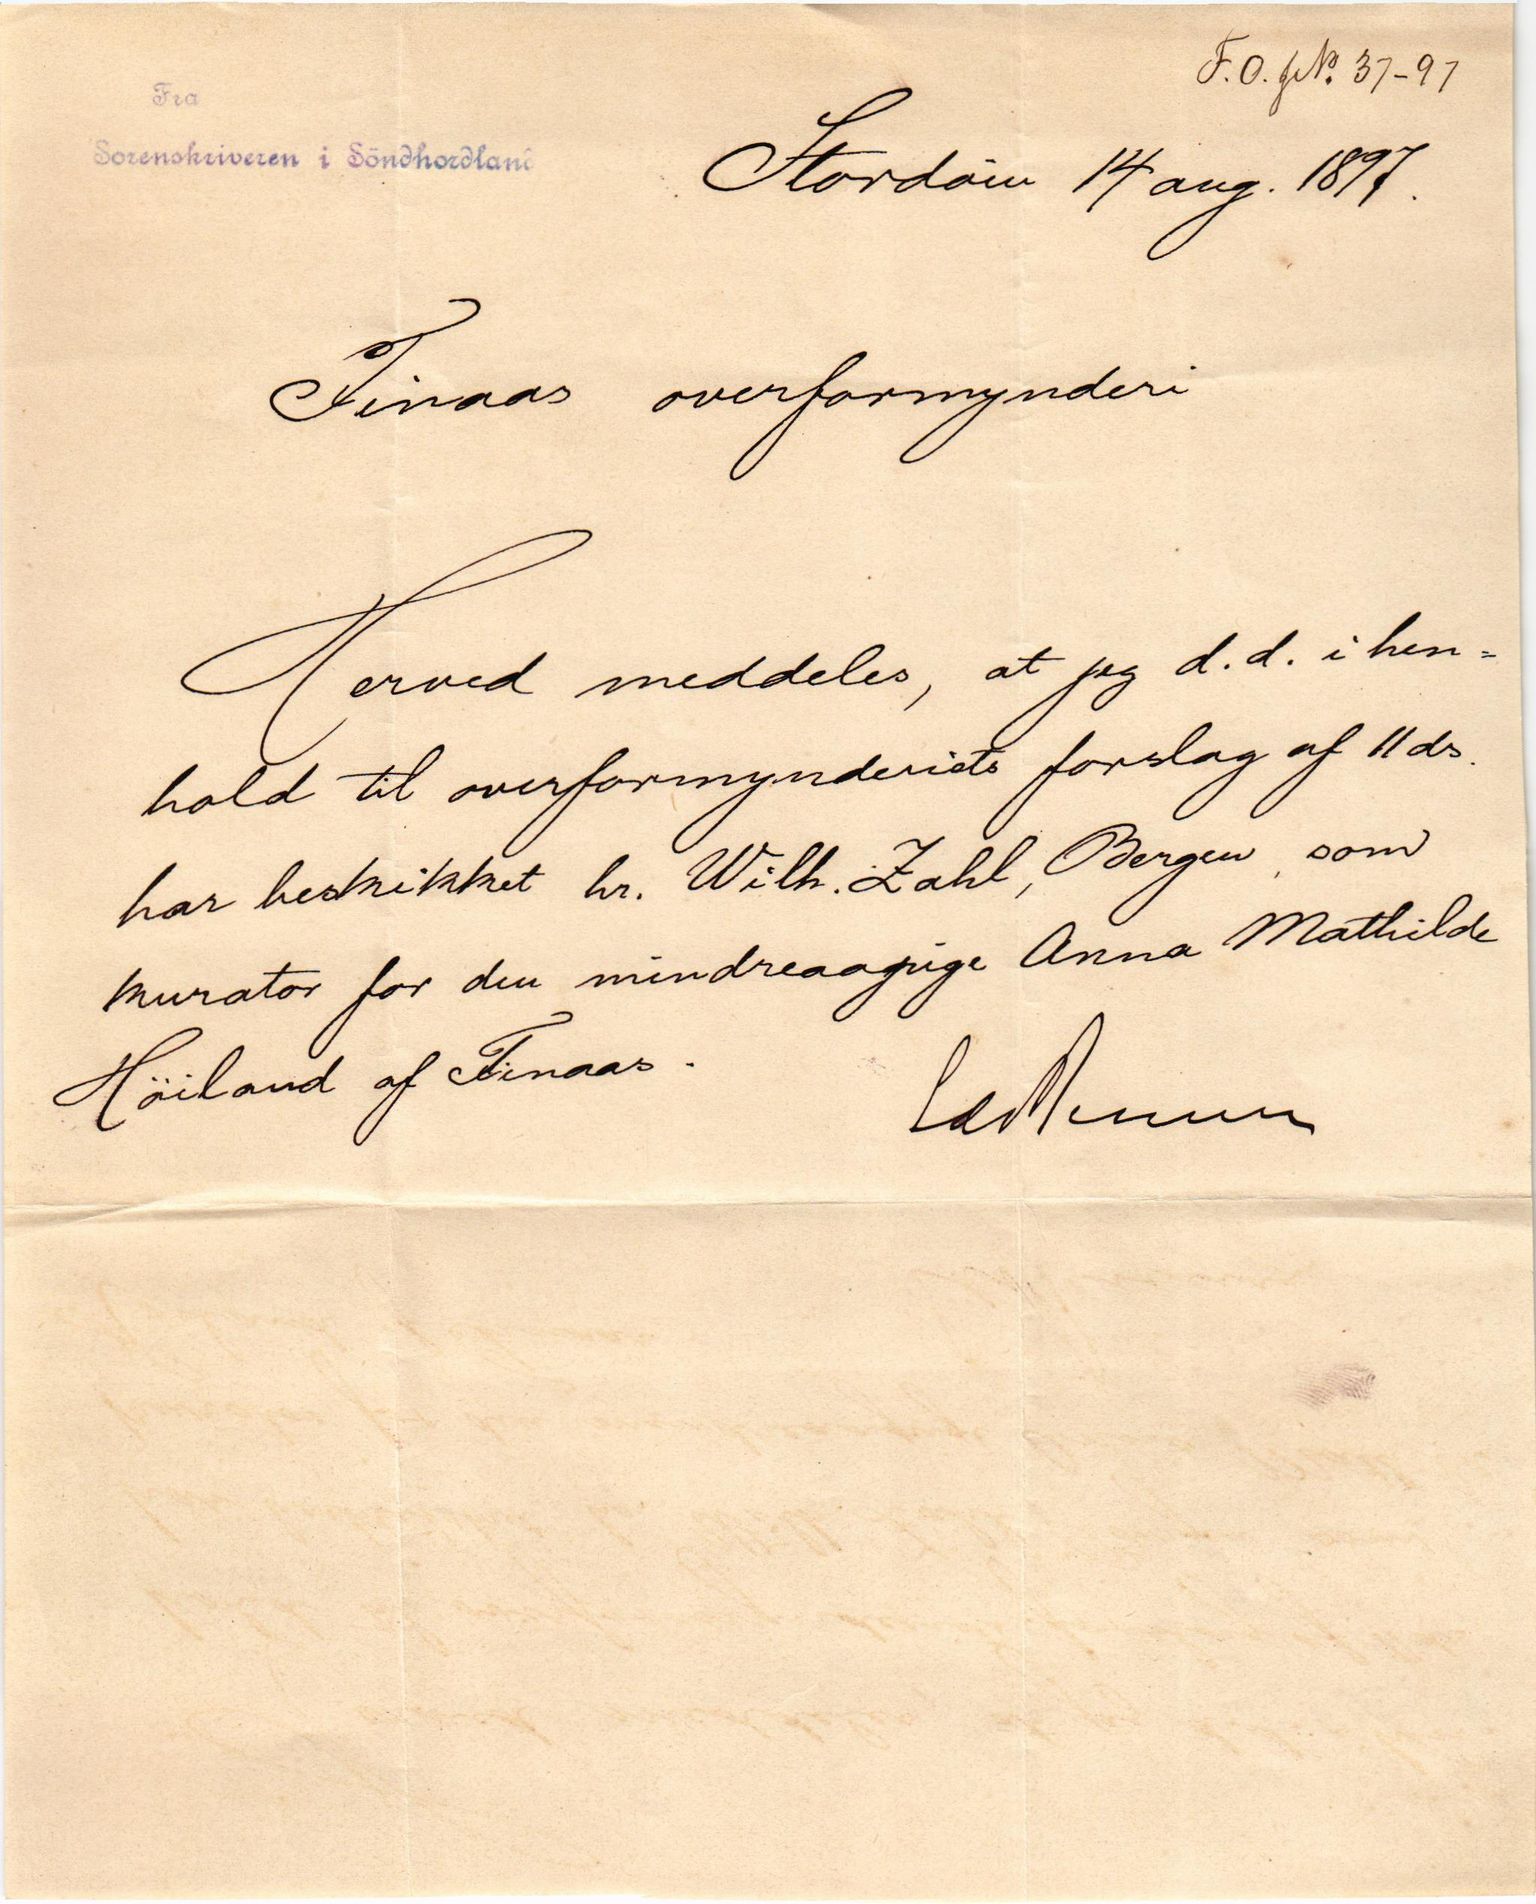 F. O. jr No. 37-97
Fra
Sorenskriveren i Söndhordland
Stordöin 14 aug. 1897.
Finaas overformynderi
Herved meddeles, at jeg d. d. i hen=
hold til overformynderiets forslag af 11 ds.
har beskikket hr. Wilh. Zahl, Bergen, som
kurator for den mindreaarige Anna Mathilde
Höiland af Finaas.